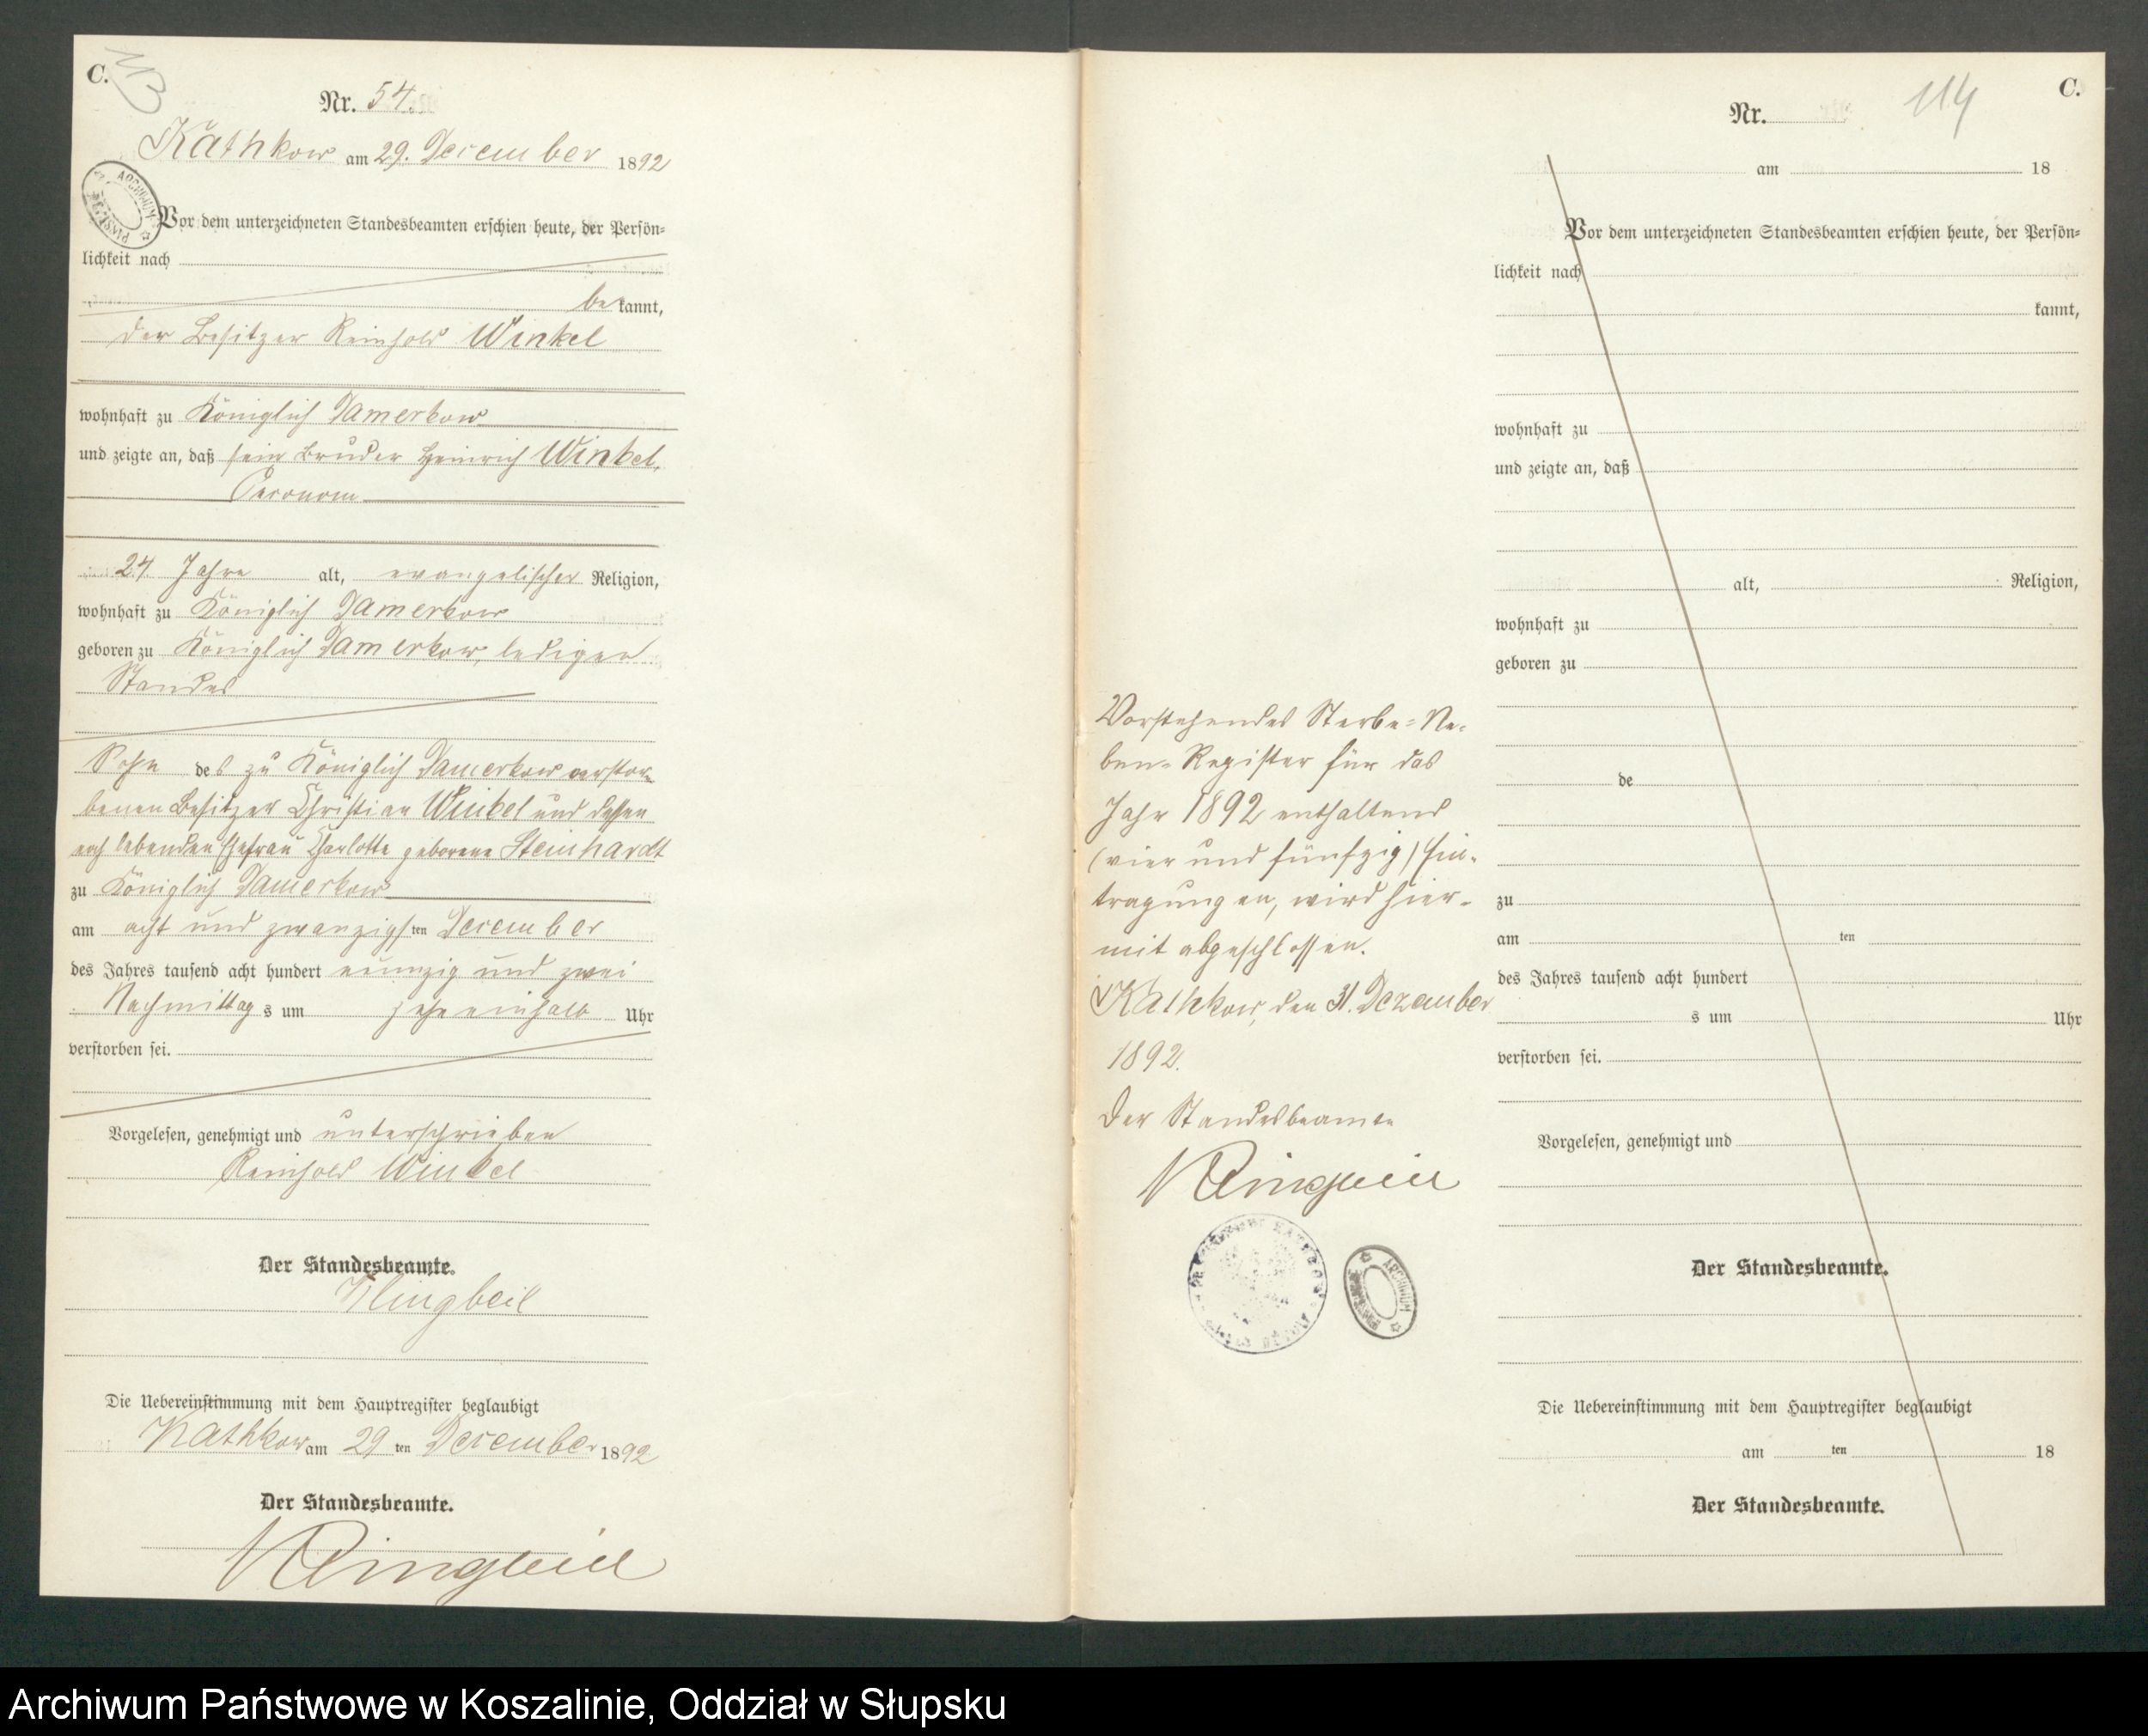 C.
113
Nr. 54.
Kathkow am 29. December 1892
Vor dem unterzeichneten Standesbeamten erschien heute, der Persön-
lichkeit nach
bekannt,
der Besitzer Reinhold Winkel
wohnhaft zu Königlich Damerkow
und zeigte an, daß sein Bruder Heinrich Winkel,
Oeconom
24 Jahre alt, evangelischer Religion,
wohnhaft zu Königlich Damerkow
geboren zu Königlich Damerkow, ledigen
Standes
Sohn des zu Königlich Damerkow verstor-
benen Besitzer Christian Winkel und dessen
noch lebenden Ehefrau Charlotte geborene Steinhardt
zu Königlich Damerkow
am acht und zwanzigsten December
des Jahres tausend acht hundert neunzig und zwei
Nachmittags um zehn einhalb Uhr
verstorben sei.
Vorgelesen, genehmigt und unterschrieben
Reinhold Winkel
Der Standesbeamte.
Klingbeil
Die Uebereinstimmung mit dem Hauptregister beglaubigt
Kathkow am 29 ten December 1892
Der Standesbeamte.
Klingbeil
Vorstehendes Sterbe-Ne-
ben-Register für das
Jahr 1892 enthaltend
(vier und fünfzig) Ein-
tragungen, wird hier-
mit abgeschlossen.
Kathkow, den 31. Dezember
1892.
Der Standesbeamte
Klingbeil
ARCHIWUM
C.
114
Nr.
am 18
Vor dem unterzeichneten Standesbeamten erschien heute, der Persön-
lichkeit nach
kannt,
wohnhaft zu
und zeigte an, daß
alt, Religion,
wohnhaft zu
geboren zu
de
zu
am ten
des Jahres tausend acht hundert
s um Uhr
verstorben sei.
Vorgelesen, genehmigt und
Der Standesbeamte.
Die Uebereinstimmung mit dem Hauptregister beglaubigt
am ten 18
Der Standesbeamte.
Archiwum Państwowe w Koszalinie, Oddział w Słupsku